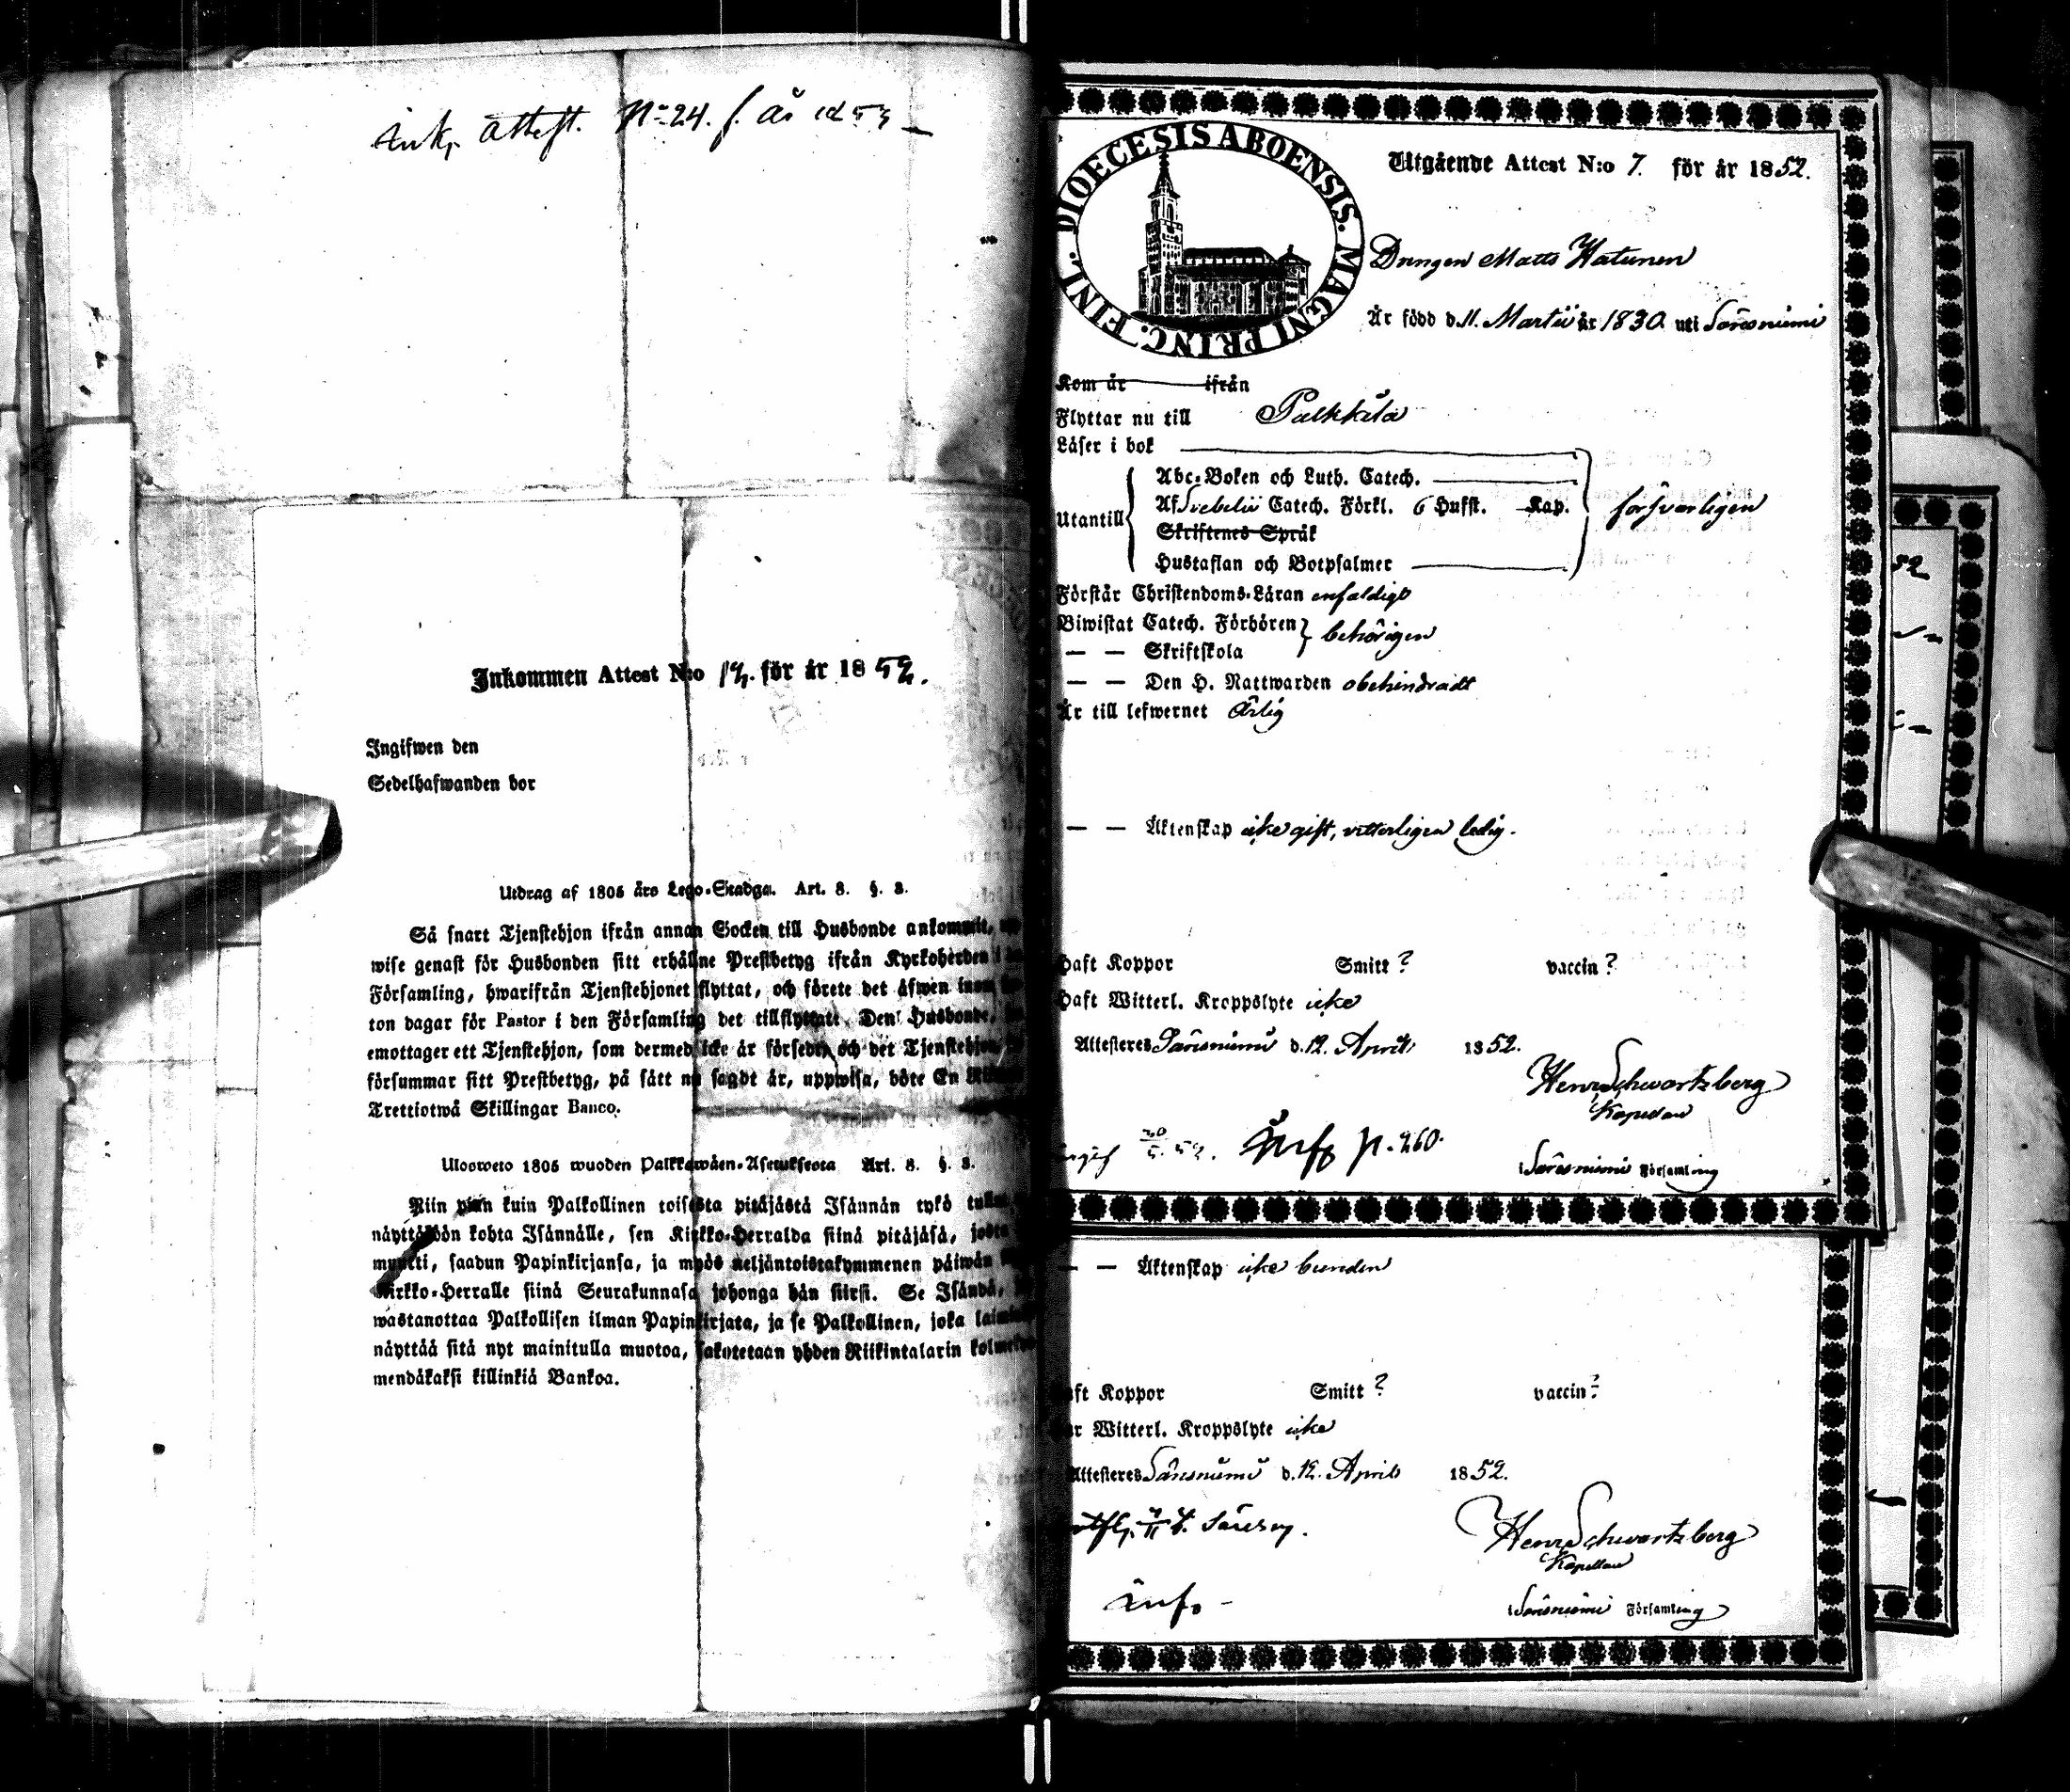 Ink. Attest. No 24. f. år 1853
Inkommen Attest N:o 14. för år 1852.
Ingifwen den
Sedelhafwanden bor
Utdrag af 1805 års Lego-Stadga. Art. 8. §. 3.
Så snart Tjenstehjon ifrån annan Socken till Husbonde ankommit,
wise genast för Husbonden sitt erhållne Prestbetyg ifrån Kyrkoherden i
Församling, hwarifrån Tjenstehjonet flyttat, och förete det äfwen inom
ton dagar för Pastor i den Församling det tillflyttat. Den Husbonde,
emottager ett Tjenstehjon, som dermed icke är försedt, och det Tjenstehjon
försummar sitt Prestbetyg, på sätt nu sagdt är, uppwisa, böte En
Trettiotwå Skillingar Banco.
Ulosweto 1805 wuoden Palkkawäen-Asetuksesta Art. 8. §. 3.
Niin pian kuin Palkollinen toisesta pitäjästä Isännän tykö
näyttäköön kohta Isännälle, sen Kirkko-Herralda siinä pitäjäsä, josta
muutti, saadun Papinkirjansa, ja myös neljäntoistakymmenen päiwän
Kirkko-Herralle siinä Seurakunnasa johonga hän siirsi. Se Isändä,
wastanottaa Palkollisen ilman Papinkirjata, ja se Palkollinen, joka
näyttää sitä nyt mainitulla muotoa, sakotetaan yhden Riikintalarin
mendäkaksi killinkiä Bankoa.
DIOECESIS ABOENSIS. MAGNI PRINC. FINL.
Utgående Attest N:o 7. för år 1852.
Drengen Matts Hatunen
Är född d. 11. Martii år 1830. uti Säresniemi
Kom år ifrån
Flyttar nu till Palkkila
Läser i bok
Abc-Boken och Luth. Catech.
Utantill Af Svebelii Catech. Förkl. 6 Hufst. Kap. försvarligen
Skriftenes Språk
Hustaflan och Botpsalmer
Förstår Christendoms-Läran enfaldigt
Biwistat Catech. Förhören behörigen
— — Skriftskola
— — Den H. Nattwarden obehindradt
Är till lefwernet Ärlig
— — Äktenskap icke gift, vitterligen ledig.
Haft Koppor Smitt? vaccin?
Haft Witterl. Kroppslyte icke
Attesteres Säresniemi d. 12. April 1852.
Henr. Schwartzberg
Kapellan
Inf. p. 260.
Säresniemi Församling
— — Äktenskap icke bunden
Haft Koppor Smitt? vaccin?
Witterl. Kroppslyte icke
Attesteres Säresniemi d. 12. April 1852.
Henr. Schwartzberg
Kapellan
Inf.
Säresniemi Församling